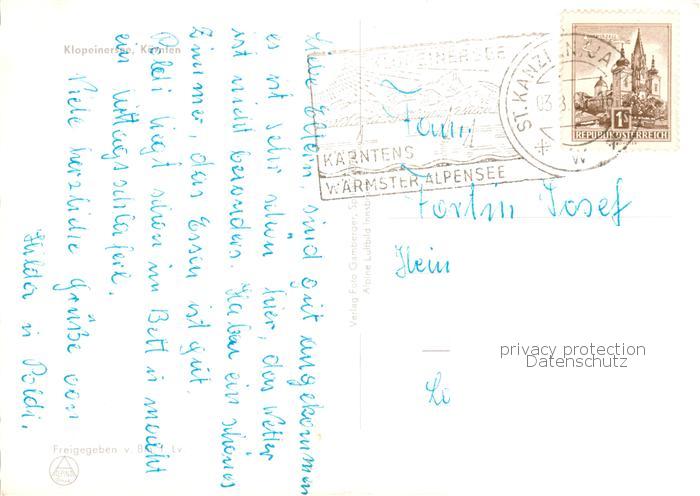 Klopeinersee, Kärnten
Liebe Eltern, sind gut angekommen
es ist sehr schön hier, das Wetter
ist nicht besonders. Haben ein schönes
Zimmer, das Essen ist gut.
Poldi liegt schon im Bett u macht
ein Mittagsschlaferl.
Viele herzliche Grüße von
Hilde u Poldi.
Freigegeben v. B
Lv
Verlag Foto Gamberger,
Alpine Luftbild Innsb
KLOPEINERSEE
KÄRNTENS
WÄRMSTER ALPENSEE
ST. KANZIAN
03.8
1 S
REPUBLIK ÖSTERREICH
Fam
Fortin Josef
privacy protection
Datenschutz